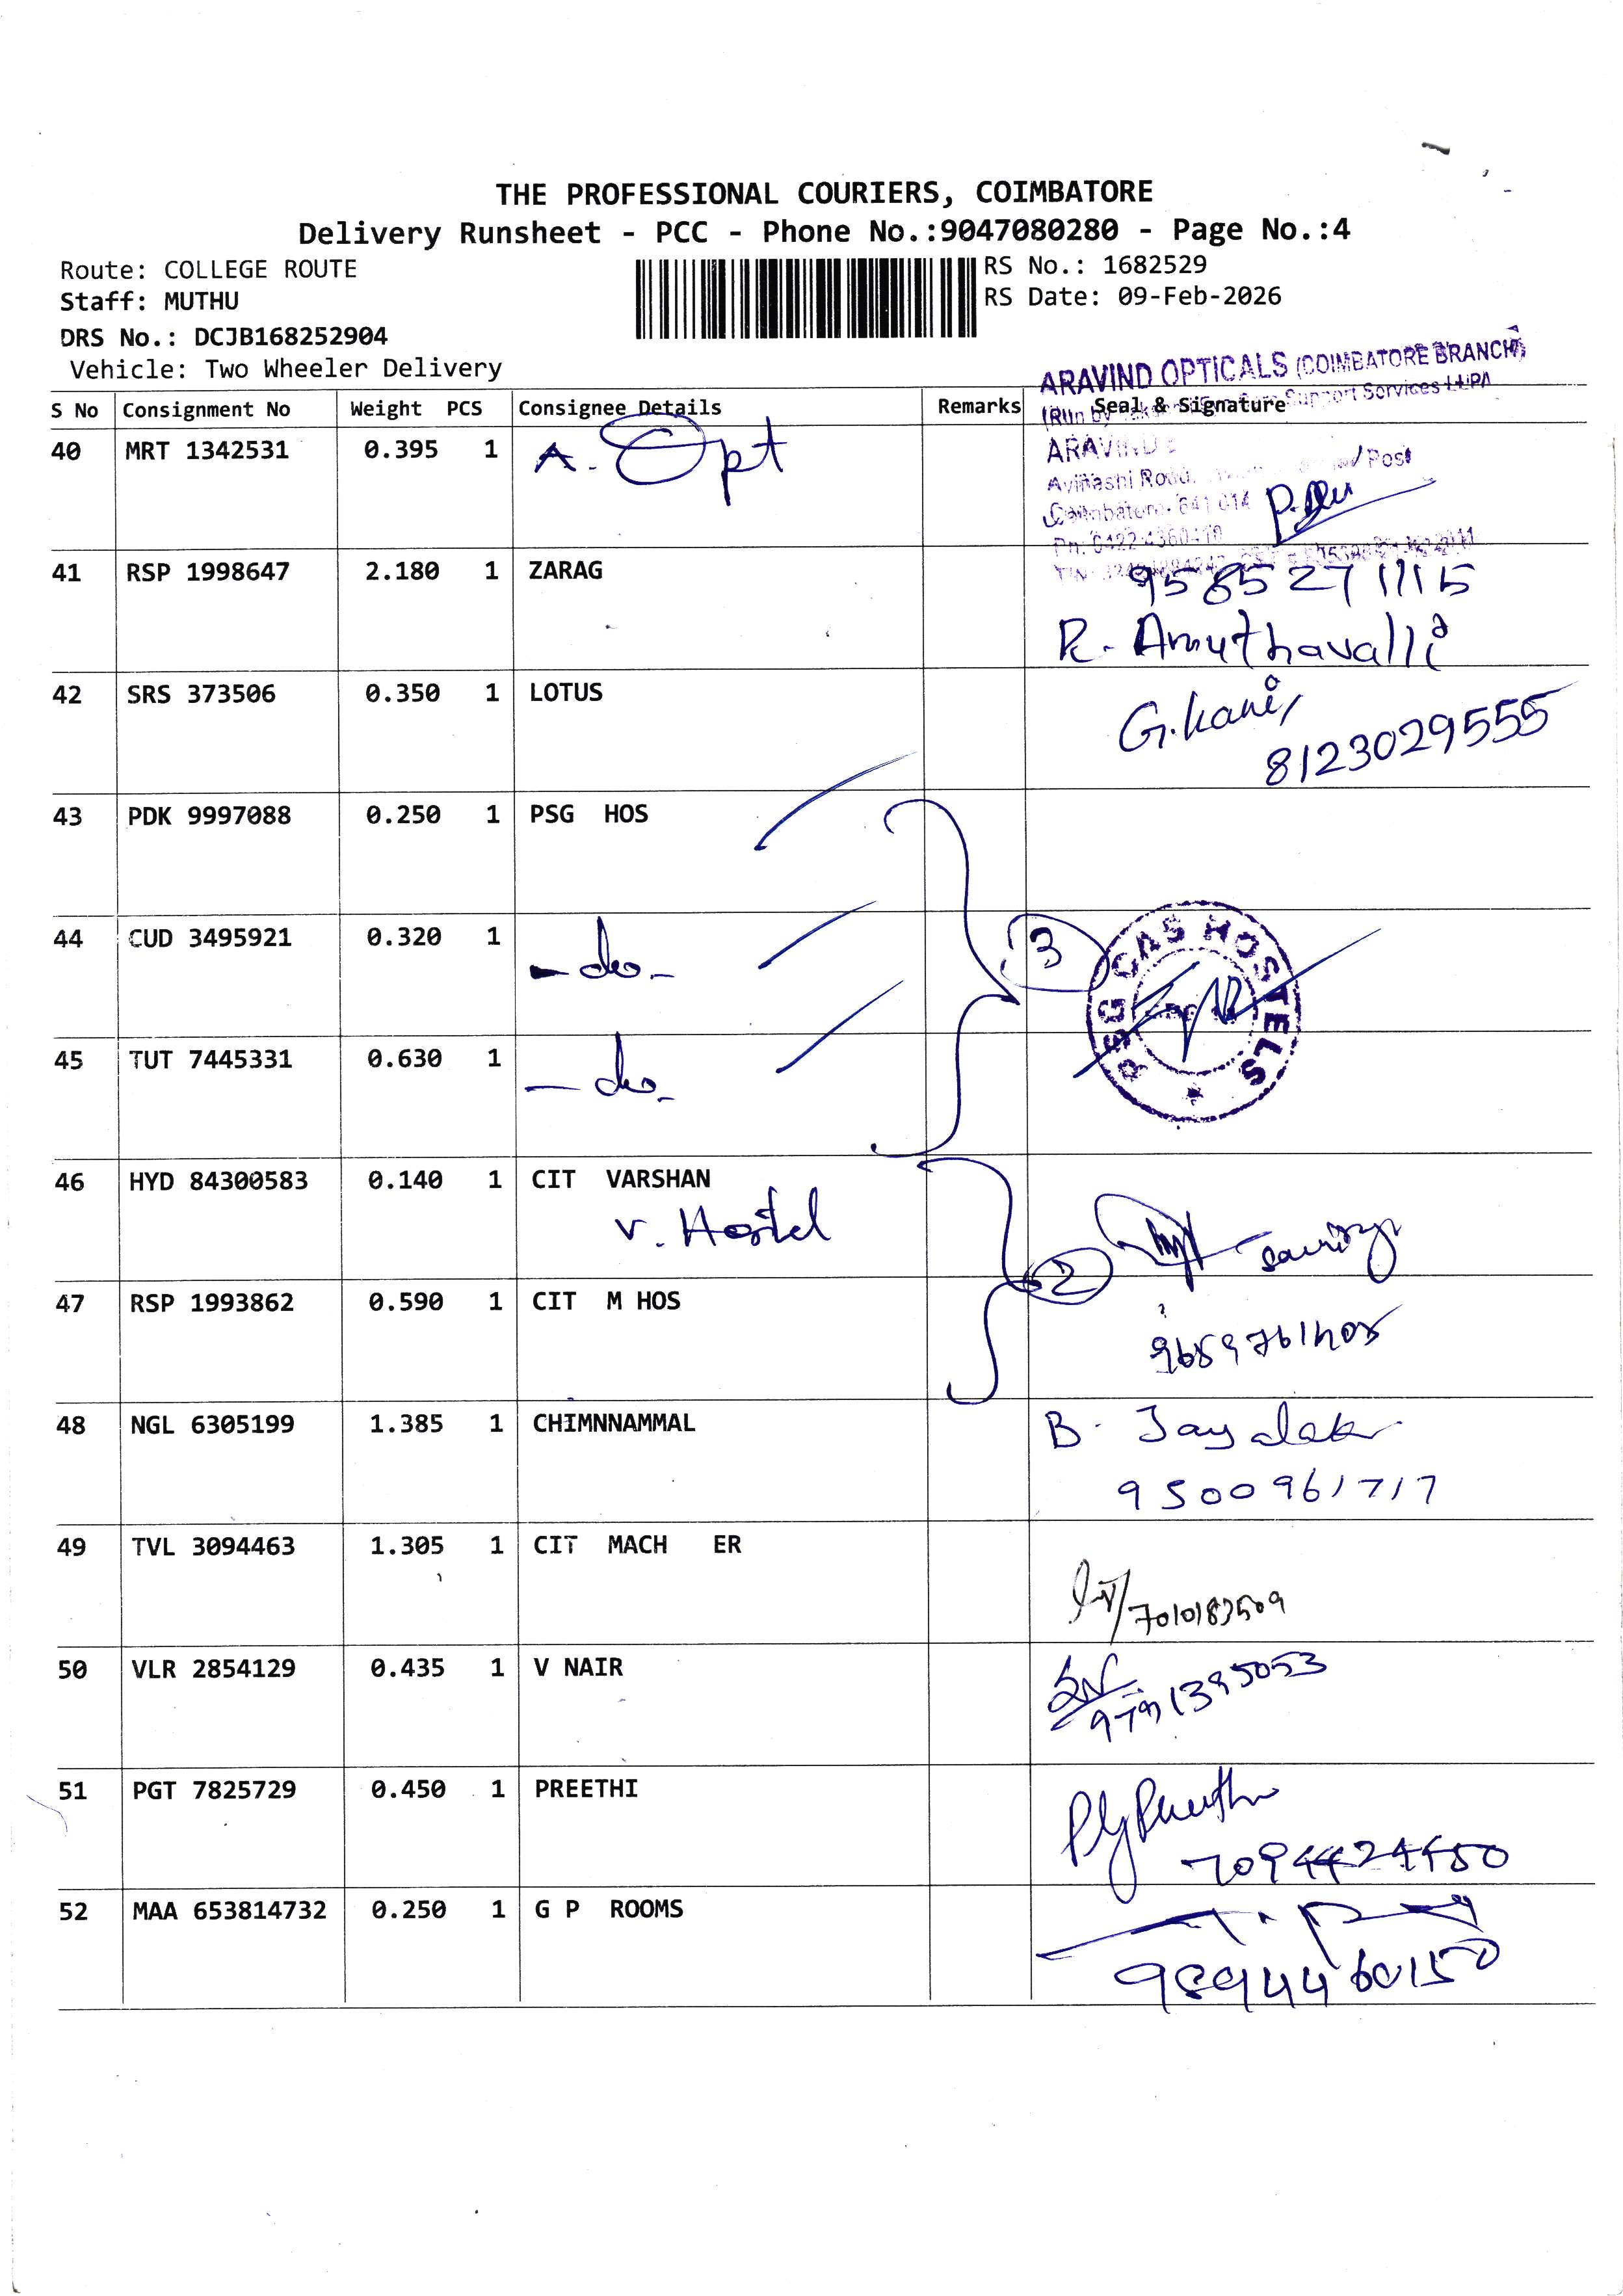 THE PROFESSIONAL COURIERS, COIMBATORE
Delivery Runsheet - PCC - Phone No.:9047080280 - Page No.:4
Route: COLLEGE ROUTE
RS No.: 1682529
Staff: MUTHU
RS Date: 09-Feb-2026
DRS No.: DCJB168252904
Vehicle: Two Wheeler Delivery
ARAVIND OPTICALS (COIMBATORE BRANCH)
(Run by Support Services
S No Consignment No Weight PCS Consignee Details Remarks Seal & Signature
40 MRT 1342531 0.395 1 A. Opt
ARAVIND
Avinashi Road, Post
Coimbatore- 641 014
41 RSP 1998647 2.180 1 ZARAG
9585271115
R. Amuthavalli
42 SRS 373506 0.350 1 LOTUS
G. kani,
8123029555
43 PDK 9997088 0.250 1 PSG HOS
44 CUD 3495921 0.320 1 - do -
3
PSG CAS HOSTELS
45 TUT 7445331 0.630 1 - do -
46 HYD 84300583 0.140 1 CIT VARSHAN
V. Hostel
2
47 RSP 1993862 0.590 1 CIT M HOS
48 NGL 6305199 1.385 1 CHIMNNAMMAL
B. Jayalak
9500961717
49 TVL 3094463 1.305 1 CIT MACH ER
7010183509
50 VLR 2854129 0.435 1 V NAIR
9791395053
51 PGT 7825729 0.450 1 PREETHI
52 MAA 653814732 0.250 1 G P ROOMS
9894460150